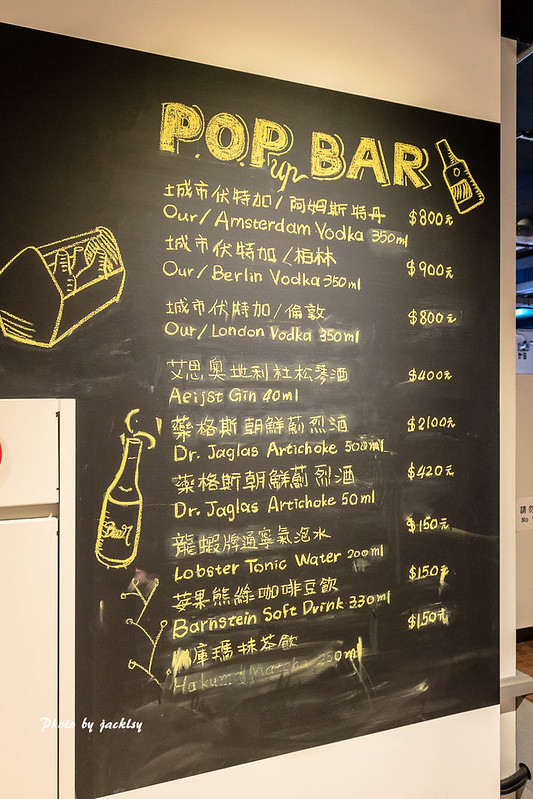 P.O.P up BAR
城市伏特加/阿姆斯特丹 $800元
Our/Amsterdam Vodka 350ml
城市伏特加/柏林 $900元
Our/Berlin Vodka 350ml
城市伏特加/倫敦 $800元
Our/London Vodka 350ml
艾思奧地利杜松琴酒 $400元
Aeijst Gin 40ml
藥格斯朝鮮薊烈酒 $2100元
Dr. Jaglas Artichoke 500ml
藥格斯朝鮮薊烈酒 $420元
Dr. Jaglas Artichoke 50ml
龍蝦牌通寧氣泡水 $150元
Lobster Tonic Water 200ml
莓果熊綠咖啡豆飲 $150元
Barnstein Soft Drink 330ml
庫瑪抹茶飲 $150元
Matcha 250ml
Beer
Photo by jacklsy
請勿
No